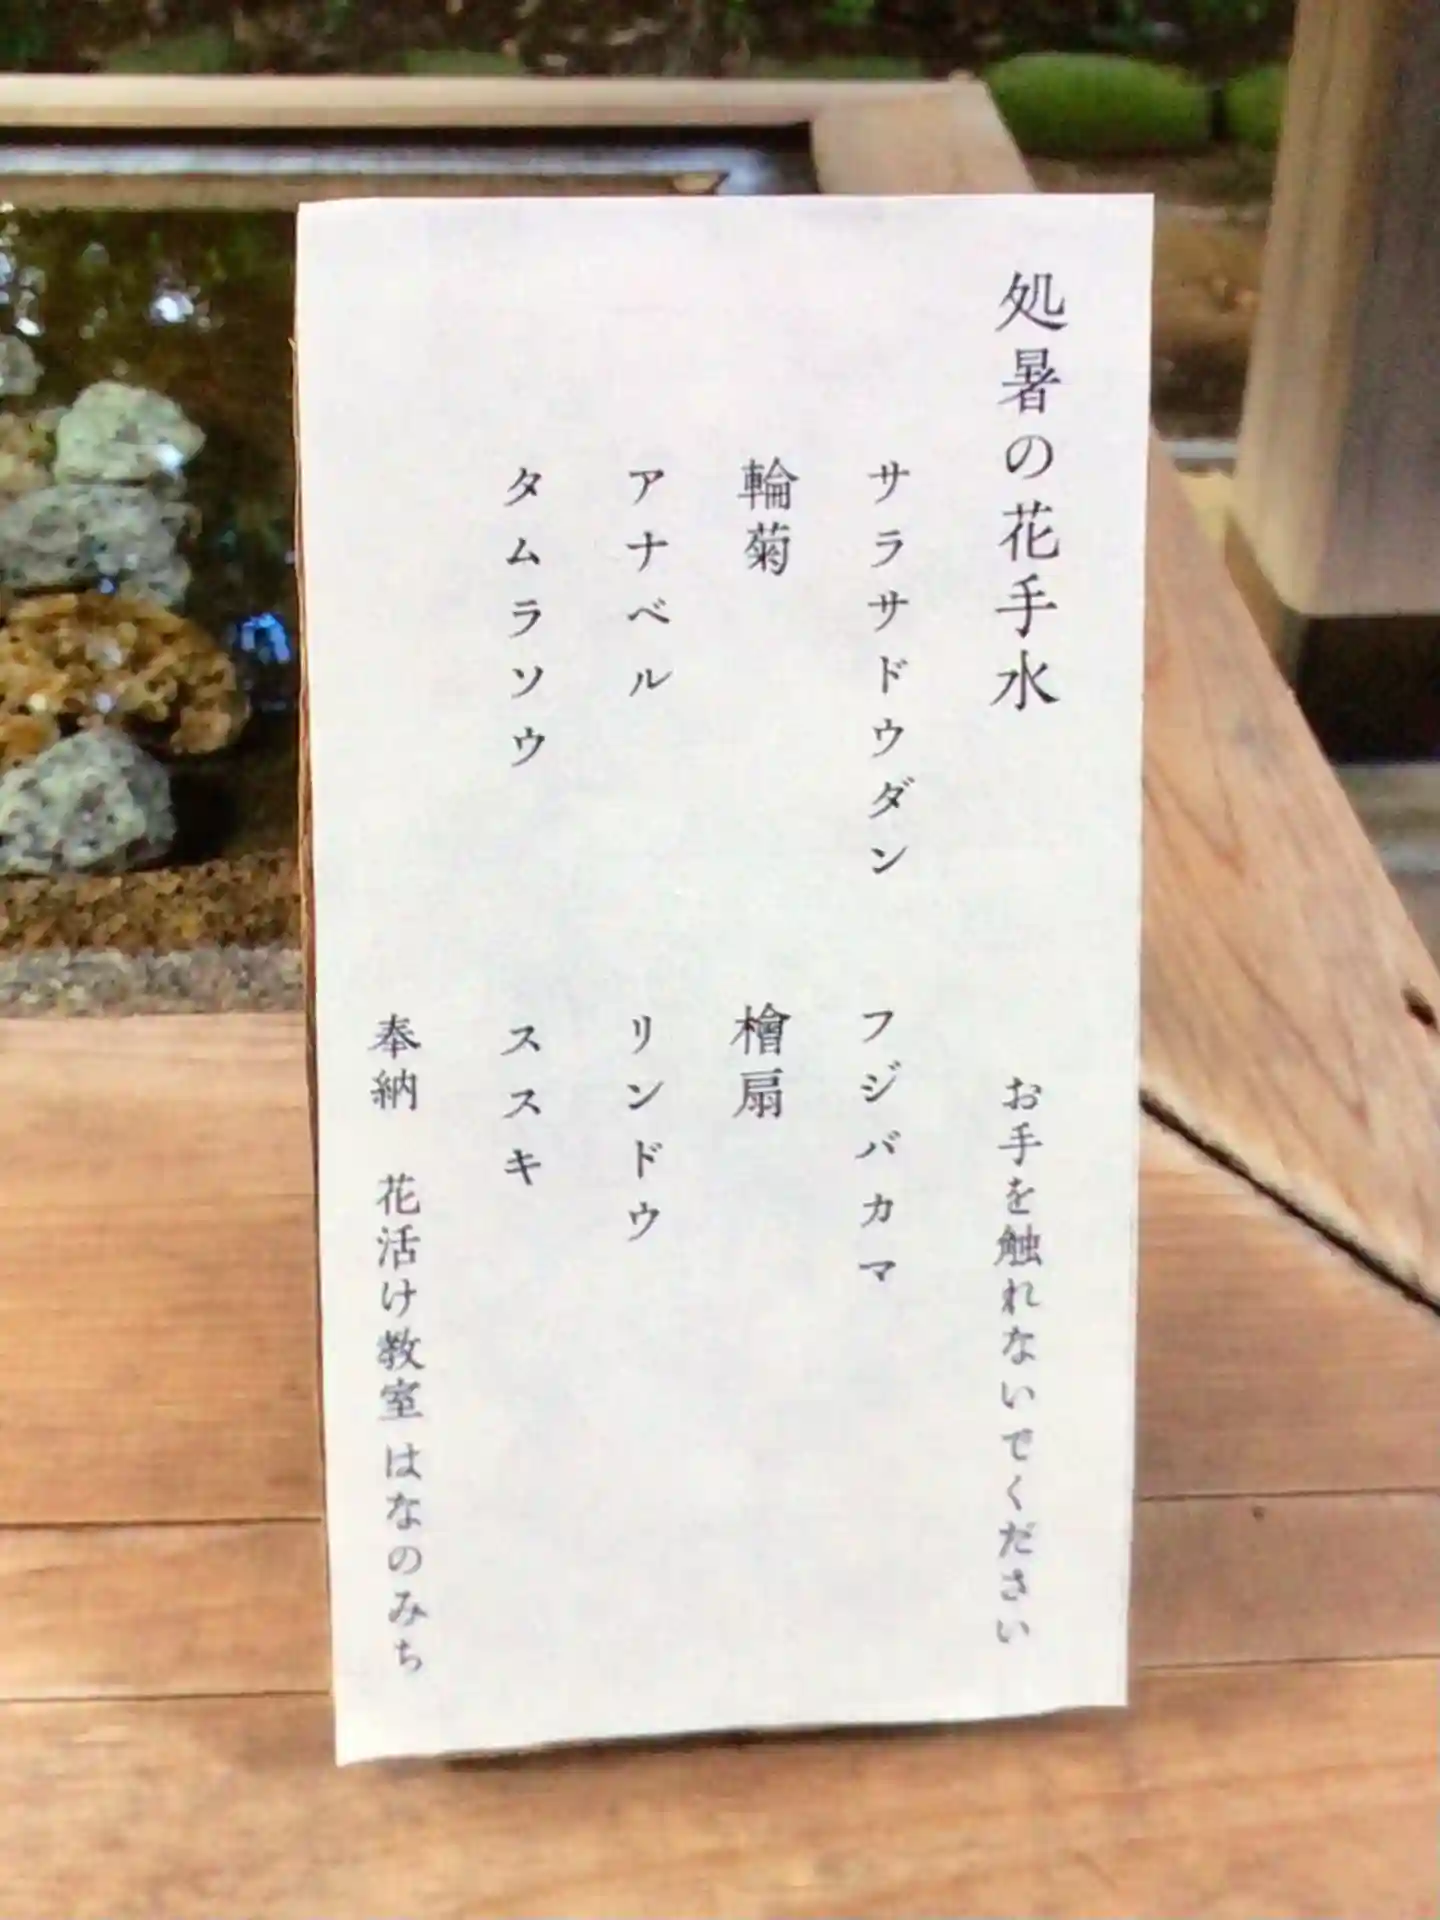 処暑の花手水　お手を触れないでください
サラサドウダン　フジバカマ
輪菊　檜扇
アナベル　リンドウ
タムラソウ　ススキ
奉納　花活け教室 はなのみち